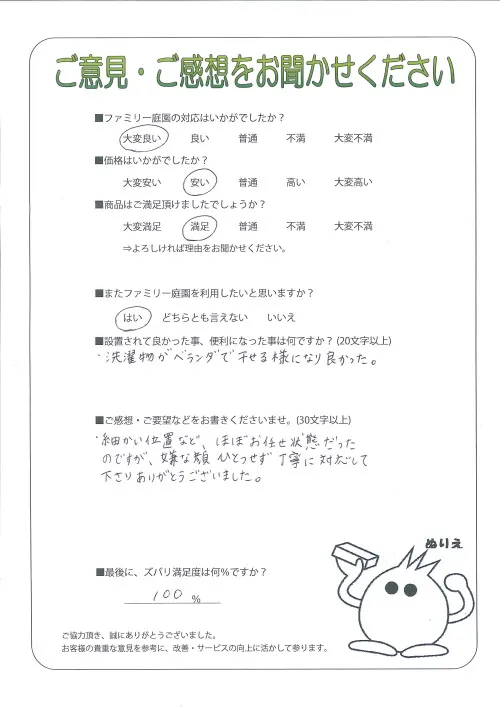 ご意見・ご感想をお聞かせください
■ファミリー庭園の対応はいかがでしたか？
大変良い 良い 普通 不満 大変不満
■価格はいかがでしたか？
大変安い 安い 普通 高い 大変高い
■商品はご満足頂けましたでしょうか？
大変満足 満足 普通 不満 大変不満
⇒よろしければ理由をお聞かせください。
■またファミリー庭園を利用したいと思いますか？
はい どちらとも言えない いいえ
■設置されて良かった事、便利になった事は何ですか？(20文字以上)
・洗濯物がベランダで干せる様になり良かった。
■ご感想・ご要望などをお書きくださいませ。(30文字以上)
・細かい位置など、ほぼお任せ状態だった
のですが、嫌な顔ひとつせず丁寧に対応して
下さりありがとうございました。
ぬりえ
■最後に、ズバリ満足度は何％ですか？
100 %
ご協力頂き、誠にありがとうございました。
お客様の貴重な意見を参考に、改善・サービスの向上に活かして参ります。